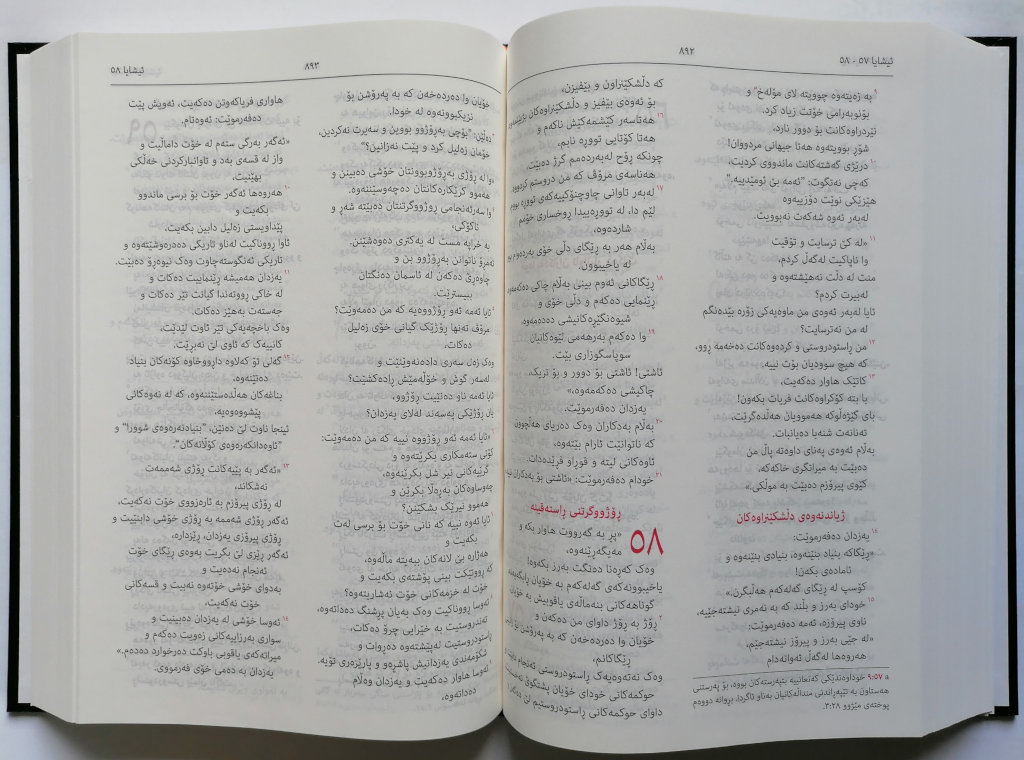 ئیشایا ٥٧ - ٥٨
٨٩٢
٩ بە زەیتەوە چوویتە لای مۆلەخ a و
بۆنوبەرامی خۆتت زیاد کرد.
نێردراوەکانت بۆ دوور نارد،
شۆڕ بوویتەوە هەتا جیهانی مردووان!
١٠ درێژی گەشتەکانت ماندووی کردیت،
کەچی نەتگوت: ”ئەمە بێ ئومێدییە.“
هێزێکی نوێت دۆزییەوە
لەبەر ئەوە شەکەت نەبوویت.
١١ «لە کێ ترسایت و تۆقیت
وا ناپاکیت لەگەڵ کردم،
منت لە دڵت نەهێشتەوە و
لەبیرت کردم؟
ئایا لەبەر ئەوەی من ماوەیەکی زۆرە بێدەنگم
لە من نەترسایت؟
١٢ من ڕاستودروستی و کردەوەکانت دەخەمە ڕوو،
کە هیچ سوودیان بۆت نییە.
١٣ کاتێک هاوار دەکەیت،
با بتە کۆکراوەکانت فریات بکەون!
بای کێژەڵوکە هەموویان هەڵدەگرێت،
تەنانەت شنەبا دەیانبات.
بەڵام ئەوەی پەنای داوەتە پاڵ من
دەبێت بە میراتگری خاکەکە،
کێوی پیرۆزم دەبێت بە موڵکی.»
ژیاندنەوەی دڵشکێنراوەکان
١٤ یەزدان دەفەرموێت:
«ڕێگاکە بنیاد بنێنەوە، بنیادی بنێنەوە و
ئامادەی بکەن!
کۆسپ لە ڕێگای گەلەکەم هەڵبگرن.»
١٥ خودای بەرز و بڵند کە بە نەمری نیشتەجێیە،
ناوی پیرۆزە، ئەمە دەفەرموێت:
«لە جێی بەرز و پیرۆز نیشتەجێم،
هەروەها لەگەڵ ئەوانەدام
a ٩:٥٧ خوداوەندێکی کەنعانییە بتپەرستەکان بووە، بۆ پەرستنی
هەستاون بە تێپەڕاندنی منداڵەکانیان بەناو ئاگردا. بڕوانە دووەم
پوختەی مێژوو ٣:٢٨.
کە دڵشکێنراون و بێفیزن،
بۆ ئەوەی بێفیز و دڵشکێنراوەکان
١٦ هەتاسەر کێشمەکێش ناکەم و
هەتا کۆتایی تووڕە نابم،
چونکە ڕۆح لەبەردەمم کرژ دەبێت،
هەناسەی مرۆڤ کە من دروستم کردووە
١٧ لەبەر تاوانی چاوچنۆکییەکەی تووڕە بووم
لێم دا، لە تووڕەییدا ڕوخساری خۆمم
شاردەوە،
بەڵام هەر بە ڕێگای دڵی خۆی بەردەوام بوو
لە یاخیبوون.
١٨ ڕێگاکانی ئەوم بینی بەڵام چاکی دەکەمەوە
ڕێنمایی دەکەم و دڵی خۆی و
شیوەنگێڕەکانیشی دەدەمەوە.
١٩ وا دەکەم بەرهەمی لێوەکانیان
سوپاسگوزاری بێت.
ئاشتی! ئاشتی بۆ دوور و بۆ نزیک،
چاکیشی دەکەمەوە.»
یەزدان دەفەرموێت.
٢٠ بەڵام بەدکاران وەک دەریای هەڵچوون
کە ناتوانێت ئارام بێتەوە،
ئاوەکانی لیتە و قوڕاو فڕێدەدات.
٢١ خودام دەفەرموێت: «ئاشتی بۆ بەدکاران نییە
ڕۆژووگرتنی ڕاستەقینە
٥٨ «پڕ بە گەرووت هاوار بکە و
مەیگەڕێنەوە،
وەک کەڕەنا دەنگت بەرز بکەوە!
یاخیبوونەکەی گەلەکەم بە خۆیان ڕابگەیەنە
گوناهەکانی بنەماڵەی یاقوبیش بە خۆیان
٢ ڕۆژ بە ڕۆژ داوای من دەکەن و
خۆیان وا دەردەخەن کە بە پەرۆشن بۆ زانینی
ڕێگاکانم،
وەک نەتەوەیەک ڕاستودروستی ئەنجام دابێت
حوکمەکانی خودای خۆیان پشتگوێ
داوای حوکمەکانی ڕاستودروستیم لێ دەکەن
ئیشایا ٥٨
٨٩٣
خۆیان وا دەردەخەن کە بە پەرۆشن بۆ
نزیکبوونەوە لە خودا.
دەڵێن: ”بۆچی بەڕۆژوو بووین و سەیرت نەکردین،
خۆمان زەلیل کرد و پێت نەزانین؟“
وا لە ڕۆژی بەڕۆژووبوونتان خۆشی دەبینن و
هەموو کرێکارەکانتان دەچەوسێننەوە.
وا سەرئەنجامی ڕۆژووگرتنتان دەبێتە شەڕ و
ناکۆکی،
بە خراپە مست لە یەکتری دەوەشێنن.
ئەمڕۆ ناتوانن بەڕۆژوو بن و
چاوەڕێ دەکەن لە ئاسمان دەنگتان
ببیسترێت.
ئایا ئەمە ئەو ڕۆژووەیە کە من دەمەوێت؟
مرۆڤ تەنها ڕۆژێک گیانی خۆی زەلیل
دەکات،
وەک زەل سەری دادەنەوێنێت و
لەسەر گوش و خۆڵەمێش ڕادەکشێت؟
ئایا ئەمە ناو دەنێیت ڕۆژوو،
یان ڕۆژێکی پەسەند لەلای یەزدان؟
«ئایا ئەمە ئەو ڕۆژووە نییە کە من دەمەوێت:
کۆتی ستەمکاری بکرێتەوە و
گرێیەکانی نیر شل بکرێنەوە،
چەوساوەکان بەڕەڵا بکرێن و
هەموو نیرێک بشکێنن؟
ئایا ئەوە نییە کە نانی خۆت بۆ برسی لەت
بکەیت و
هەژارە بێ لانەکان ببەیتە ماڵەوە،
کە ڕووتێکت بینی پۆشتەی بکەیت و
خۆت لە خزمەکانی خۆت نەشاریتەوە؟
ئەوسا ڕووناکیت وەک بەیان پرشنگ دەداتەوە،
تەندروستیت بە خێرایی چرۆ دەکات،
ڕاستودروستیت لەپێشتەوە دەڕوات و
شکۆمەندی یەزدانیش پاشڕەو و پارێزەری تۆیە.
ئەوسا هاوار دەکەیت و یەزدان وەڵام
دەداتەوە،
هاواری فریاکەوتن دەکەیت، ئەویش پێت
دەفەرموێت: ئەوەتام.
«ئەگەر بەرگی ستەم لە خۆت داماڵیت و
واز لە قسەی بەد و تاوانبارکردنی خەڵکی
بهێنیت،
١٠ هەروەها ئەگەر خۆت بۆ برسی ماندوو
بکەیت و
پێداویستی زەلیل دابین بکەیت،
ئاوا ڕووناکیت لەناو تاریکی دەدرەوشێتەوە و
تاریکی ئەنگوستەچاوت وەک نیوەڕۆ دەبێت.
١١ یەزدان هەمیشە ڕێنماییت دەکات و
لە خاکی ڕووتەندا گیانت تێر دەکات و
جەستەت بەهێز دەکات.
وەک باخچەیەکی تێر ئاوت لێدێت،
کانییەک کە ئاوی لێ نەبڕێت.
١٢ گەلی تۆ کەلاوە داڕووخاوە کۆنەکان بنیاد
دەنێنەوە،
بناغەکان هەڵدەستێننەوە، کە لە نەوەکانی
پێشووەوەیە،
ئینجا ناوت لێ دەنێن، ”بنیادنەرەوەی شوورا“ و
”ئاوەدانکەرەوەی کۆڵانەکان“.
١٣ «ئەگەر بە پێیەکانت ڕۆژی شەممەت
نەشکاند،
لە ڕۆژی پیرۆزم بە ئارەزووی خۆت نەکەیت،
ئەگەر ڕۆژی شەممە بە ڕۆژی خۆشی دابنێیت و
ڕۆژی پیرۆزی یەزدان، ڕێزدارە،
ئەگەر ڕێزی لێ بگریت بەوەی ڕێگای خۆت
ئەنجام نەدەیت و
بەدوای خۆشی خۆتەوە نەبیت و قسەکانی
خۆت نەکەیت،
١٤ ئەوسا خۆشی لە یەزدان دەبینیت و
سواری بەرزاییەکانی زەویت دەکەم و
میراتەکەی یاقوبی باوکت دەرخوارد دەدەم.»
یەزدان بە دەمی خۆی فەرمووی.